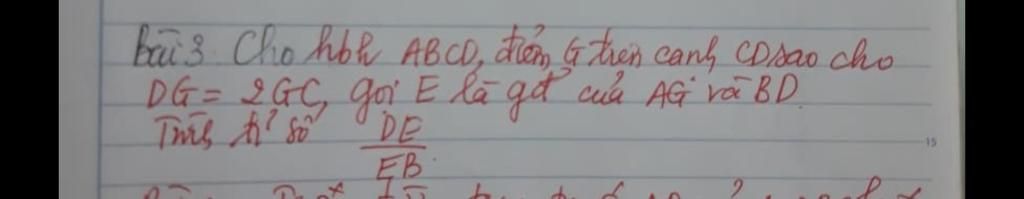 Bài 3 Cho hbh ABCD, điểm G trên cạnh CD sao cho
DG = 2GC, gọi E là gđ của AG và BD
Tính tỉ số DE
EB
15